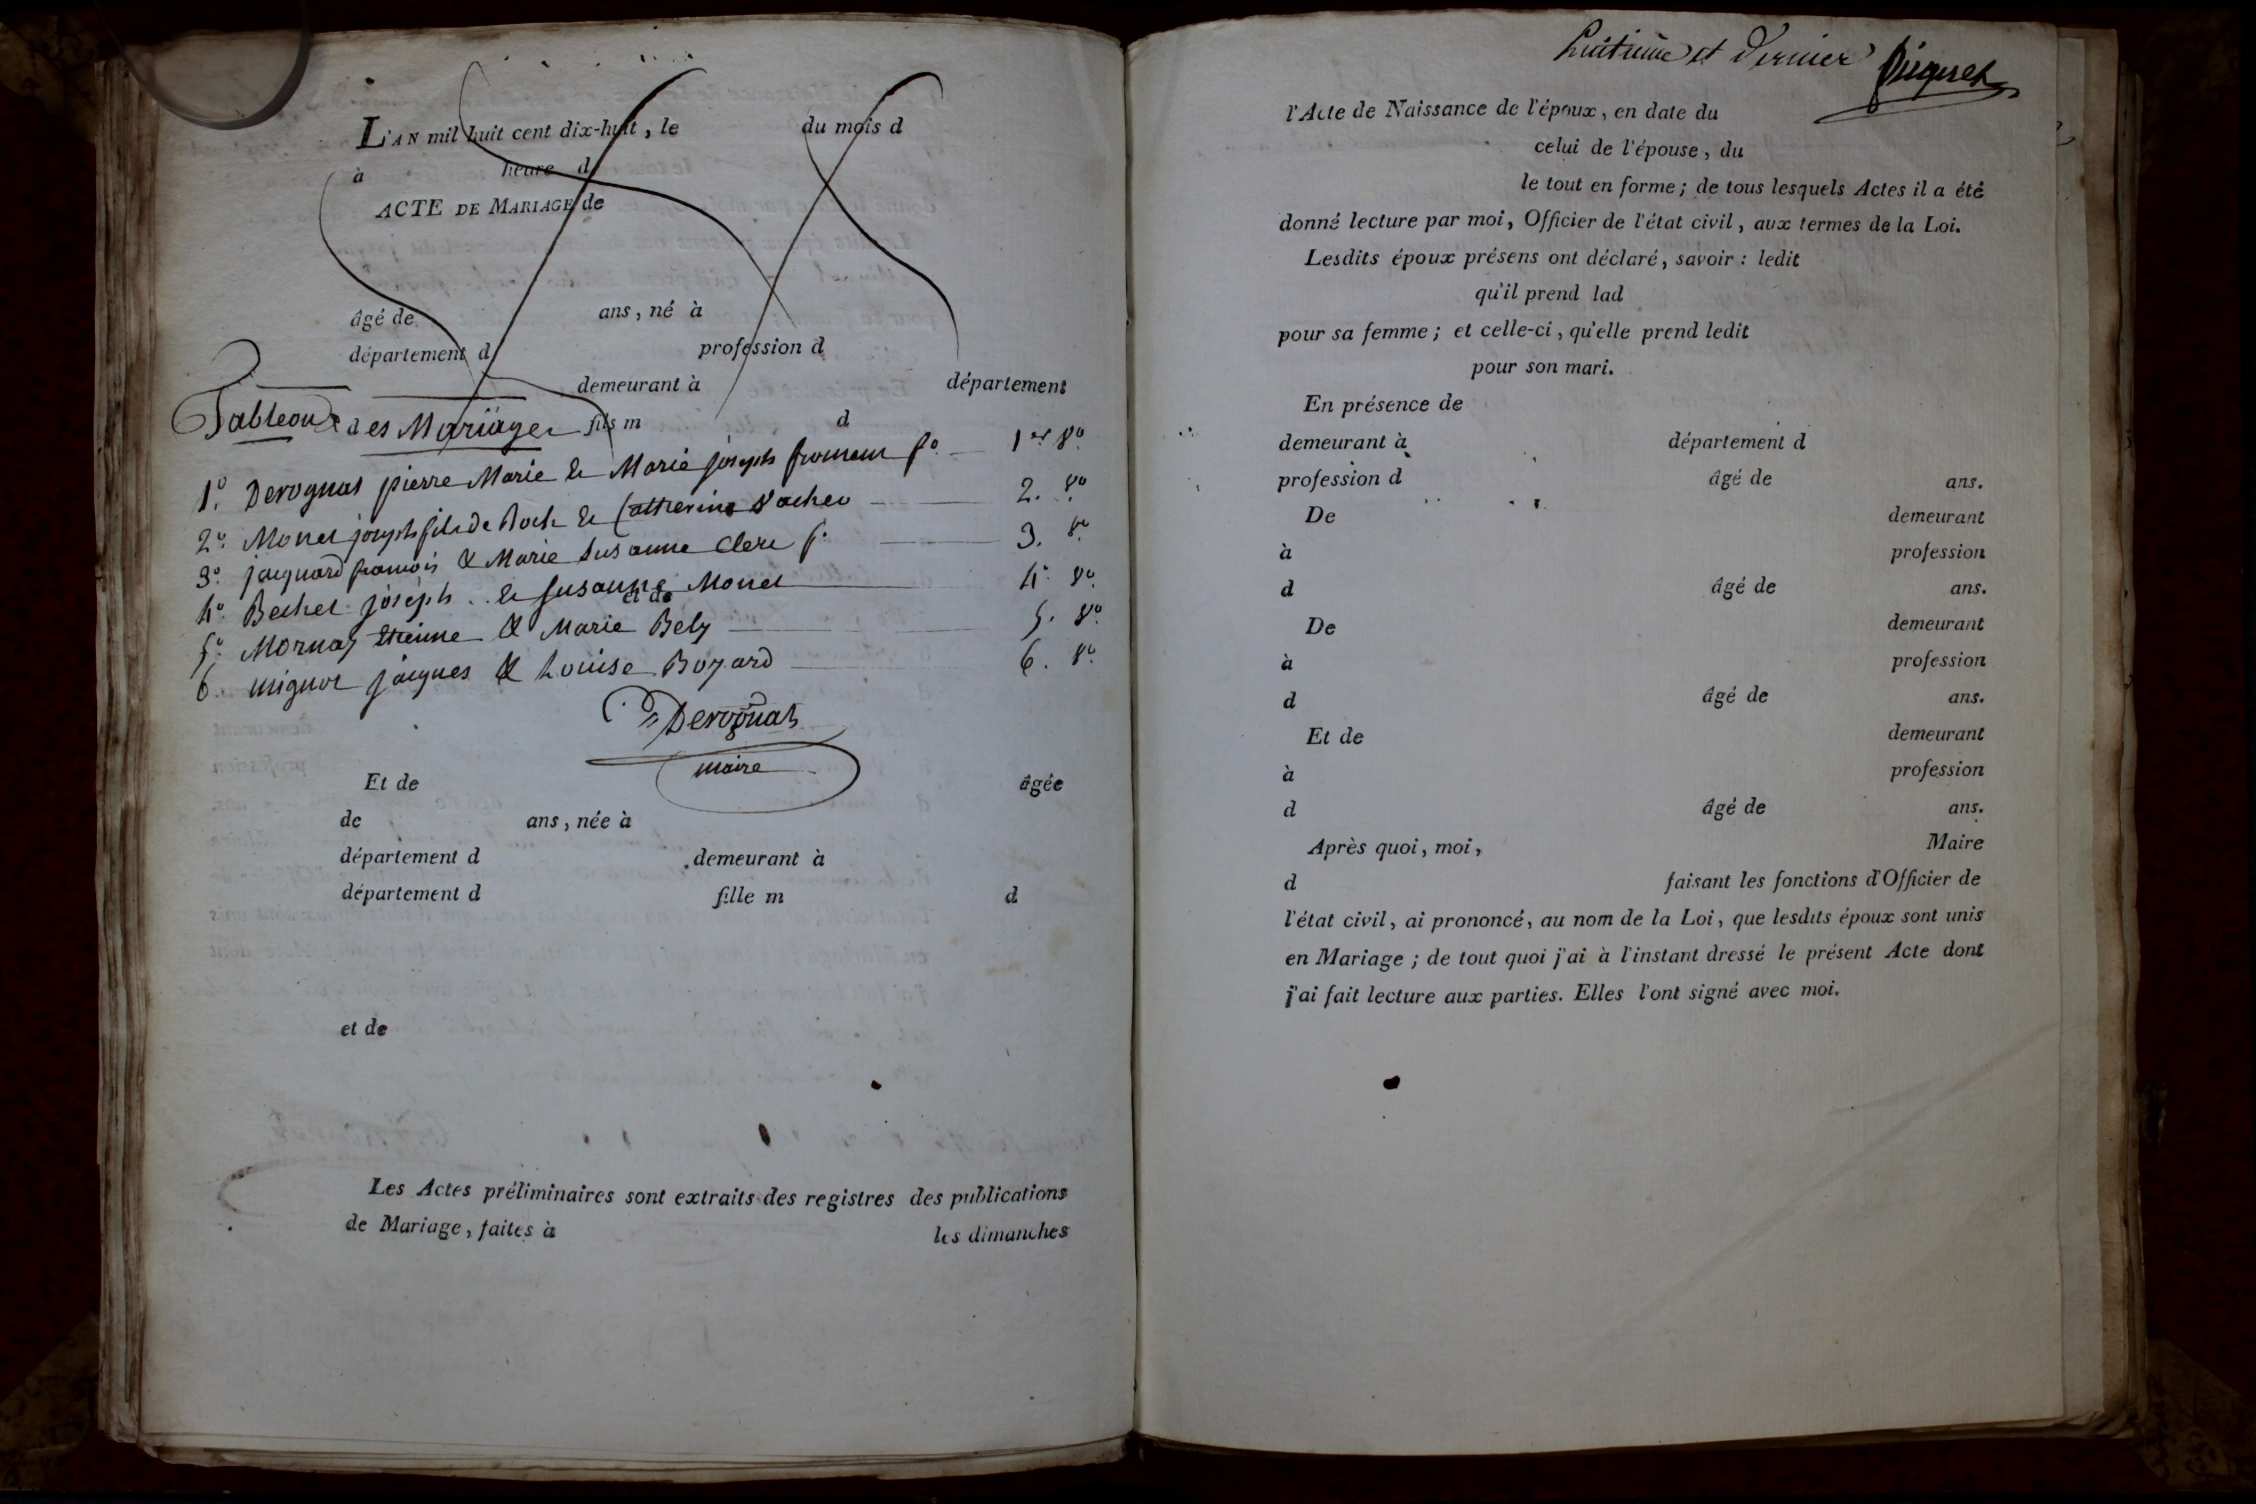 L'AN mil huit cent dix-huit, le du mois d
à heure d
ACTE DE MARIAGE de
âgé de ans, né à
département d profession d
demeurant à département
fils m d
Tableau des Mariages
1º. Derognat pierre Marie & Marie joseph fº. 1er vº.
2º. Monet joseph fils de Roch & Catherine vacher 2. vº.
3º. jacquard françois & Marie Susanne Clerc fº. 3. vº.
4º. Bechet joseph & Susanne Monet 4. vº.
et de
5º. Mornay Etienne & Marie Bely 5. vº.
6. mignot jacques & Louise Boyard 6. vº.
Derognat
maire
Et de âgée
de ans, née à
département d demeurant à
département d fille m d
et de
Les Actes préliminaires sont extraits des registres des publications
de Mariage, faites à les dimanches
huitième et dernier
l'Acte de Naissance de l'époux, en date du
celui de l'épouse, du
le tout en forme; de tous lesquels Actes il a été
donné lecture par moi, Officier de l'état civil, aux termes de la Loi.
Lesdits époux présens ont déclaré, savoir: ledit
qu'il prend lad
pour sa femme; et celle-ci, qu'elle prend ledit
pour son mari.
En présence de
demeurant à département d
profession d âgé de ans.
De demeurant
à profession
d âgé de ans.
De demeurant
à profession
d âgé de ans.
Et de demeurant
à profession
d âgé de ans.
Après quoi, moi, Maire
d faisant les fonctions d'Officier de
l'état civil, ai prononcé, au nom de la Loi, que lesdits époux sont unis
en Mariage; de tout quoi j'ai à l'instant dressé le présent Acte dont
j'ai fait lecture aux parties. Elles l'ont signé avec moi.